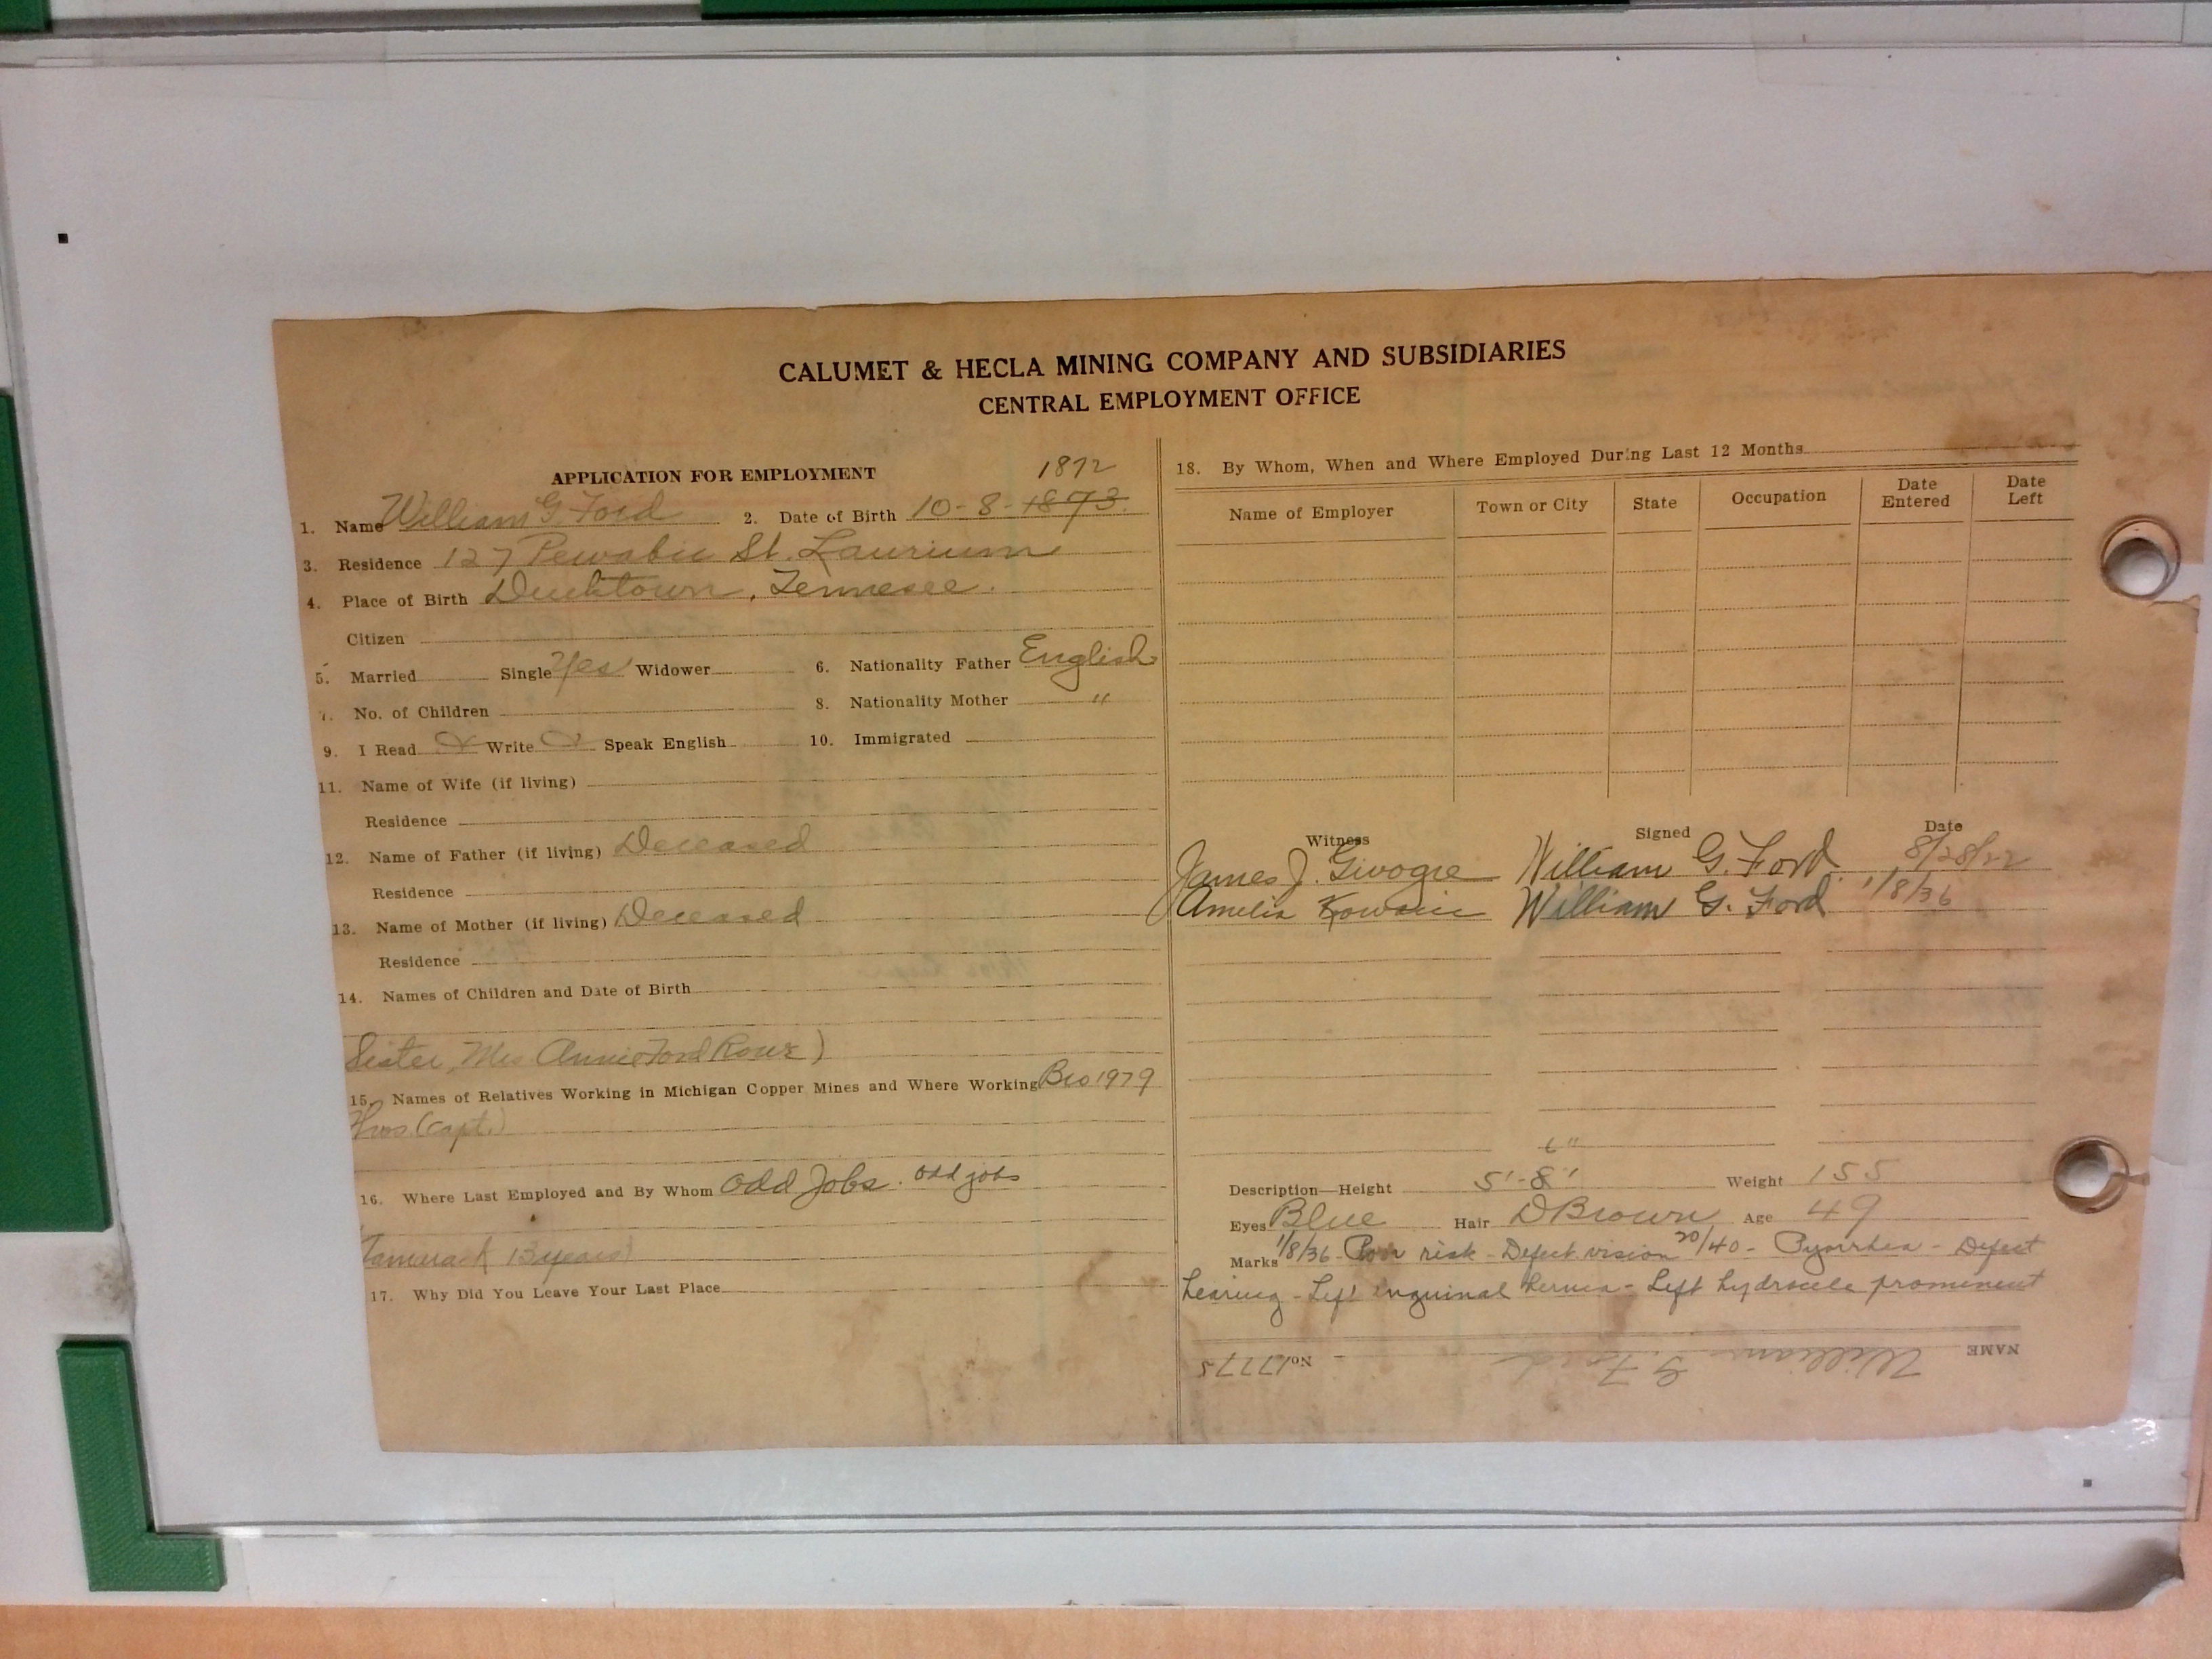 CALUMET & HECLA MINING COMPANY AND SUBSIDIARIES
CENTRAL EMPLOYMENT OFFICE
APPLICATION FOR EMPLOYMENT
1872
1. Name William G Ford 2. Date of Birth 10-8-1873
3. Residence 127 Pewabic St. Laurium
4. Place of Birth Ducktown, Tennesee.
Citizen
5. Married Single Yes Widower 6. Nationality Father English
7. No. of Children 8. Nationality Mother "
9. I Read Write Speak English 10. Immigrated
11. Name of Wife (if living)
Residence
12. Name of Father (if living) Deceased
Residence
13. Name of Mother (if living) Deceased
Residence
14. Names of Children and Date of Birth
Sister, Mrs Annie Ford Rowe)
15. Names of Relatives Working in Michigan Copper Mines and Where Working Bro 1979
Thos. (Capt.)
16. Where Last Employed and By Whom Odd Jobs. Odd jobs
Tamarack 13 years)
17. Why Did You Leave Your Last Place
18. By Whom, When and Where Employed During Last 12 Months
Name of Employer Town or City State Occupation Date Entered Date Left
Witness Signed Date
James J. William G. Ford 8/28/22
Amelia William G. Ford 1/8/36
6"
Description—Height 5'-8" Weight 155
Eyes Blue Hair D Brown Age 49
Marks 1/8/36 - Poor risk - Defect vision 20/40 - Pyorrhea - Defect
hearing - Left inguinal hernia - Left hydrocele prominent
NAME William G. Ford No. 17775